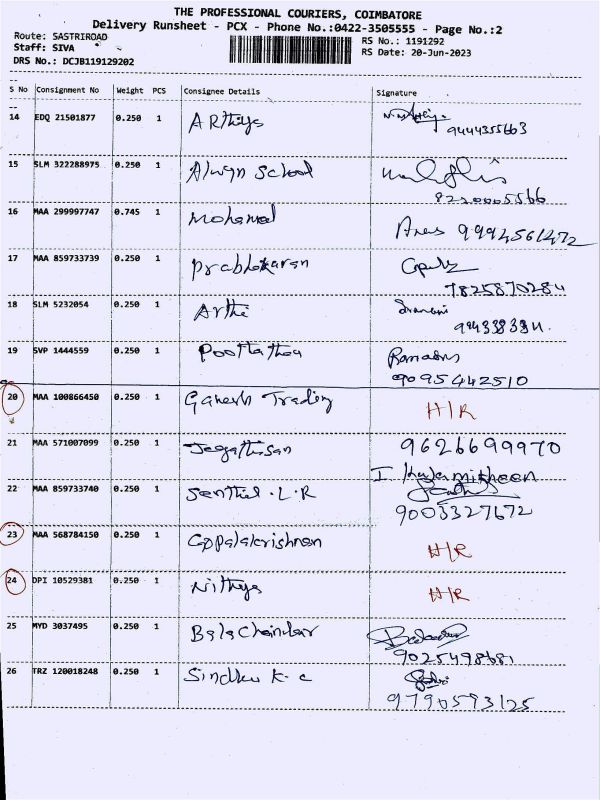 THE PROFESSIONAL COURIERS, COIMBATORE
Delivery Runsheet - PCX - Phone No.:0422-3505555 - Page No.:2
Route: SASTRIROAD
Staff: SIVA
DRS No.: DCJB119129202
RS No.: 1191292
RS Date: 20-Jun-2023
S No Consignment No Weight PCS Consignee Details Signature
14 EDQ 21501877 0.250 1 ARthiya
9444355663
15 SLM 322288975 0.250 1 Alwyn School
8220005566
16 MAA 299997747 0.745 1 Mohamed
Anas 9994561472
17 MAA 859733739 0.250 1 Prabhakaran
7825870284
18 SLM 5232054 0.250 1 Arthi
19 SVP 1444559 0.250 1
9095442510
20 MAA 100866450 0.250 1 Ganesh Trading H/R
21 MAA 571007099 0.250 1 Jegathisan 9626699970
22 MAA 859733740 0.250 1 Senthil.L.R
9003327672
23 MAA 568784150 0.250 1 Gopalakrishnan H/R
24 DPI 10529381 0.250 1 Nithya H/R
25 MYD 3037495 0.250 1 Balachandar
9025498681
26 TRZ 120018248 0.250 1 Sindhu K.C
9790593125